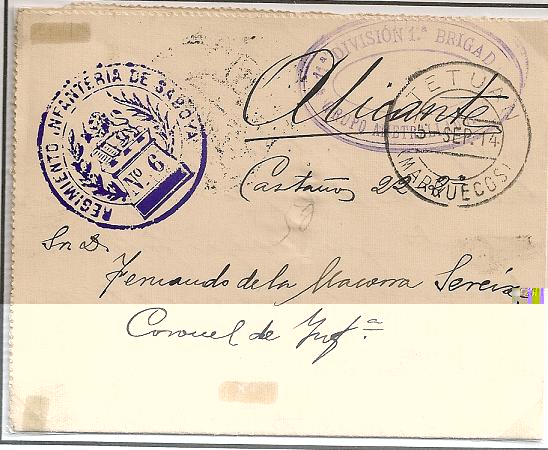 1ª DIVISIÓN 1.ª BRIGAD
REGIMIENTO INFANTERIA DE SABOYA
Nº 6
TETUAN
SEP. 14
(MARRUECOS)
Alicante
Castaños 22 2º
Sr. D.
Fernando de la Macorra
Coronel de Infª